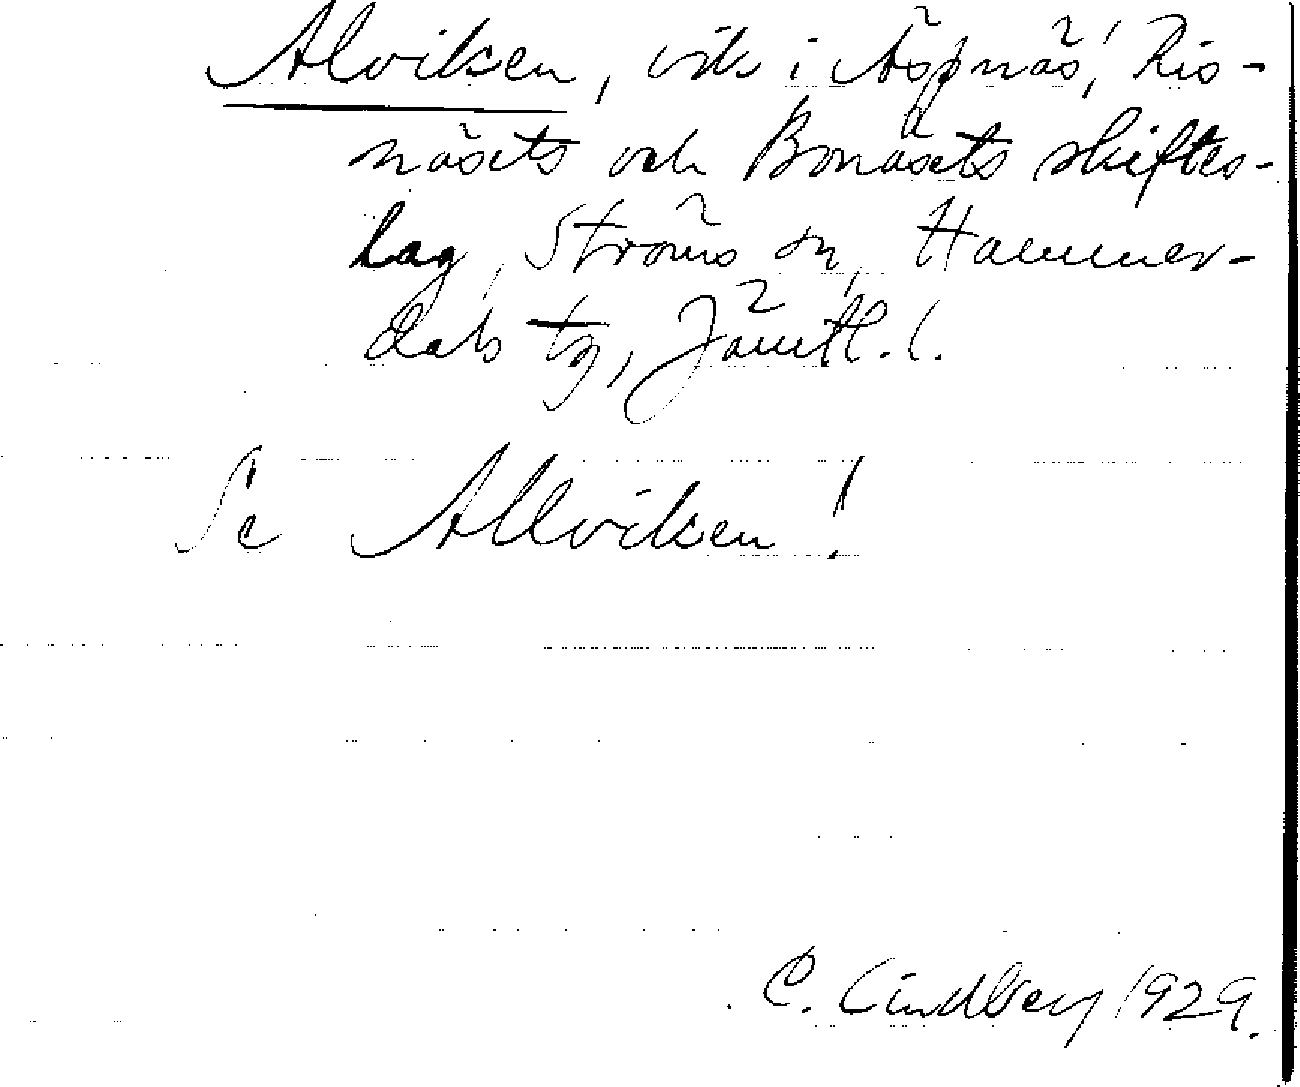 Alviken, vik i Äspnäs, Ris-
näsets och Bonäsets skiftes-
lag, Ströms sn, Hammer-
dals tg, Jämtl. l.
Se Allviken!
C. Lindberg 1929.